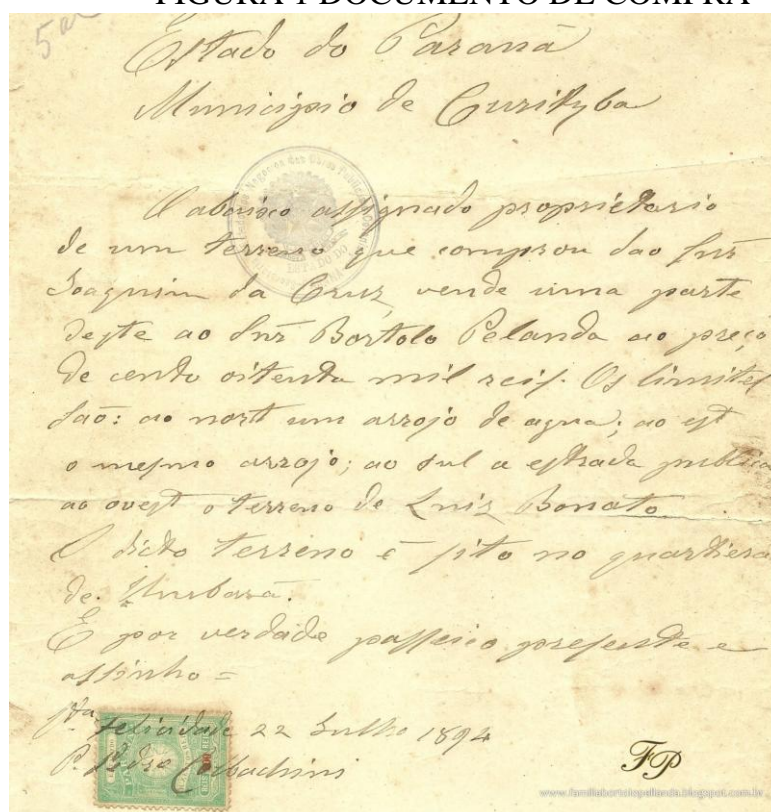 FIGURA 1 DOCUMENTO DE COMPRA
Estado do Paraná
Municipio de Curityba
O abaixo assignado proprietario
de um terreno que comprou dao Snr
Joaquim da Cruz, vende uma parte
deste ao Snr Bortolo Pelanda ao preço
de cento oitenta mil reis. Os limites
são: ao nort um arrojo de agua; ao est
o mesmo arrojo; ao sul a estrada publica
ao ovest o terreno de Luiz Bonato
O dicto terreno é sito no quartiera
de Umbará.
E por verdade passeio presente e
assinho =
Sta Felicidade 22 Julho 1894
P. Pedro Colbachini
FP
www.familiabortolopellanda.blogspot.com.br